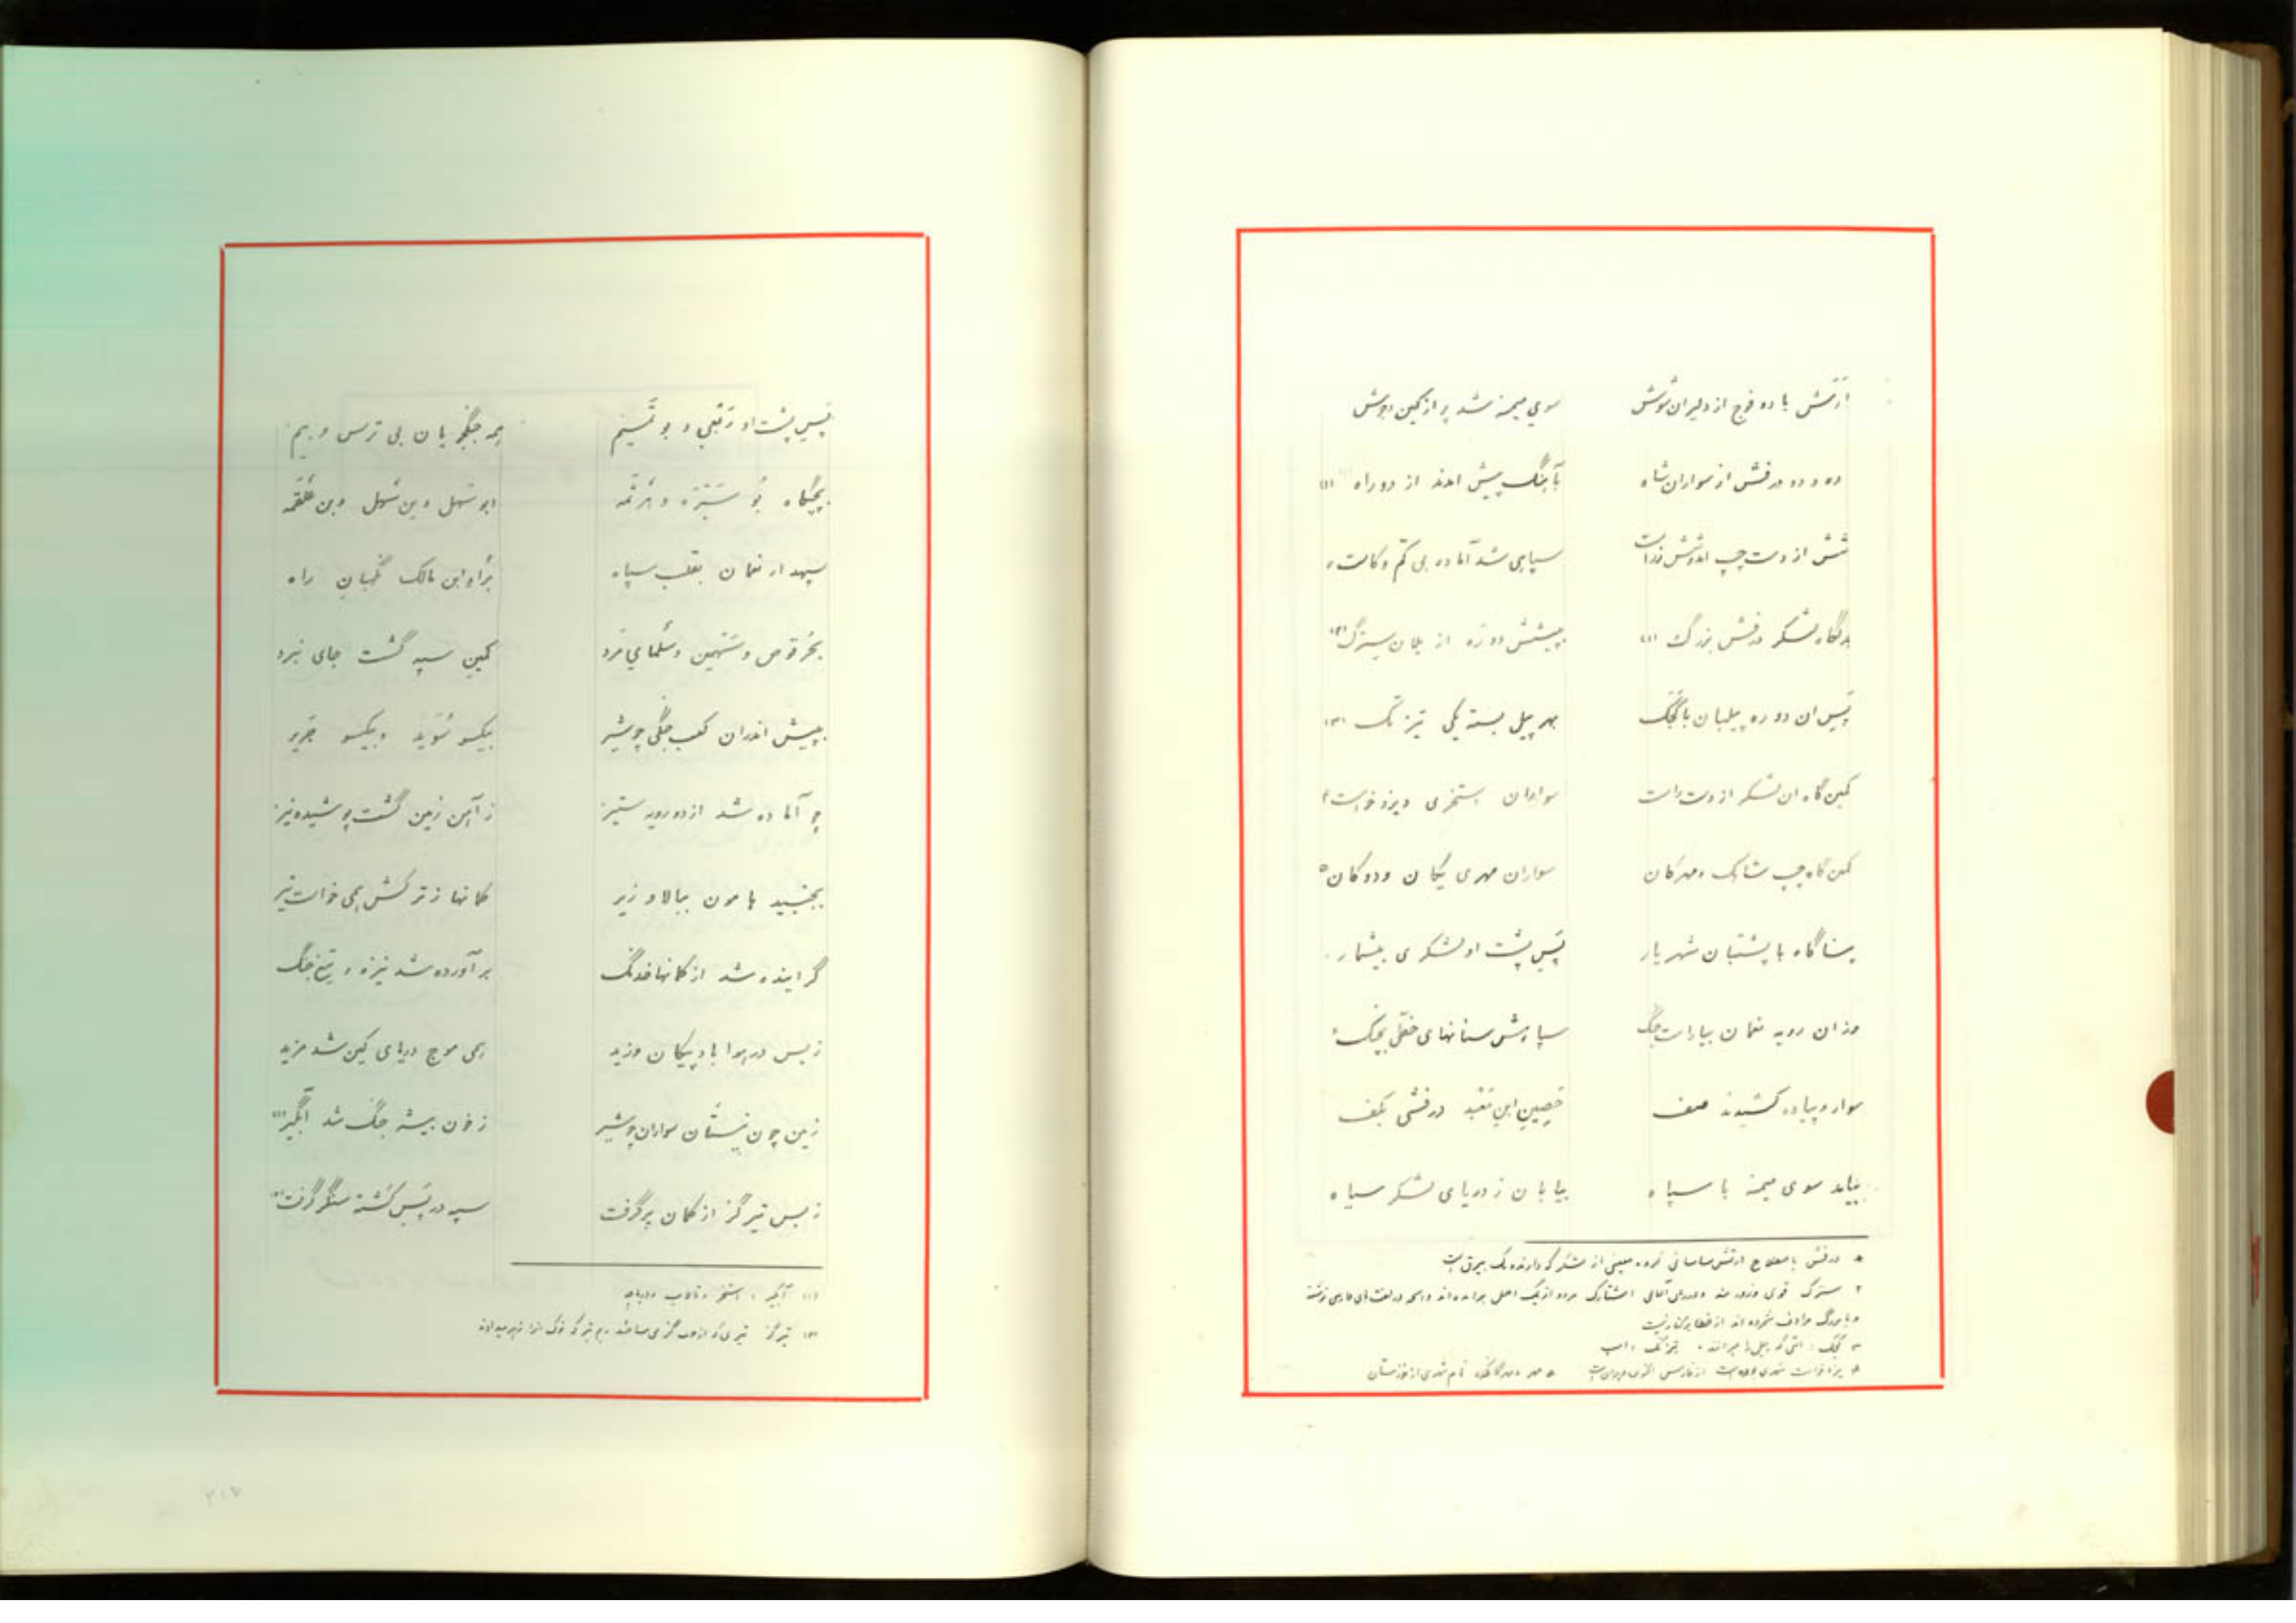 ارتش با ده فوج از دلیران شوش سوی میمنه شد پر از کین و جوش
ده و دو درفش از سواران شاه بآهنگ پیش امدند از دو راه (۱)
شش از دست چپ اندرش زراست سپاهی شد آماده بی کم و کاست
لشکر درفش بزرگ (۱) بپیشش دو رَه از یلان سترگ (۲)
پس ان دو ره پیلبان با کجک بهر پیل بسته یکی تیز تک (۳)
کمین گاه ان لشکر از دست راست سواران استخری و یزد خواست ۴
کمین گاه چپ شاپک و مهرکان سواران مهری یکان و دوکان ۵
پناگاه با پشتبان شهریار پس پشت او لشکری بیشمار
وزان رویه نعمان بیاراست جنگ سپاهش سنانهای خطی بچنگ
سوار و پیاده کشیدند صف حصین ابن معبد درفشی بکف
بیامد سوی میمنه با سپاه بیابان ز دریای لشکر سیاه
درفش باصطلاح ارتش ساسانی گروه معینی از لشکر که دارنده یک بیرق است
۲ سترک قوی وزورمند
و با بزرگ مرادف شمرده اند از خطا برکنار نیست
۳ کجک : التی که پیل را میرانند . تیزتک : اسپ
۴ یزدخواست شهری بوده است از فارس اکنون ویران است ۵ مهر و مهرکانکده نام شهری از خوزستان
پس پشت او رَبعی و بو تمیم همه جنگجویان بی ترس و بیم
بجنگاه بو سَبرَه و هرثمه ابو سهل و بن سهل و بن علقمه
سپهدار نعمان بقلب سپاه براه ابن مالک نگهبان راه
بحرقوص و سَتهین و سلمای مرد کمین سپه گشت جای نبرد
بپیش اندران کعب جنگی چو شیر بیکسو سُوَید و بیکسو جریر
چو آماده شد از دو رویه ستیز ز آهن زمین گشت پوشیده نیز
بجنبید هامون ببالا و زیر کمانها ز ترکش همی خواست تیر
گراینده شد از کمانها خدنگ برآورده شد نیزه و تیغ جنگ
ز بس در هوا باد پیکان وزید همی موج دریای کین شد مزید
زمین چون نیستان سواران چو شیر ز خون بیشه جنگ شد آبگیر (۱)
ز بس تیر گز از کمان پر گرفت سپه در پس کشته سنگر گرفت (۲)
(۱) آبگیر : استخر و تالاب و دریاچه
(۲) تیر گز تیری که از چوب گز می ساختند
۲۱۷